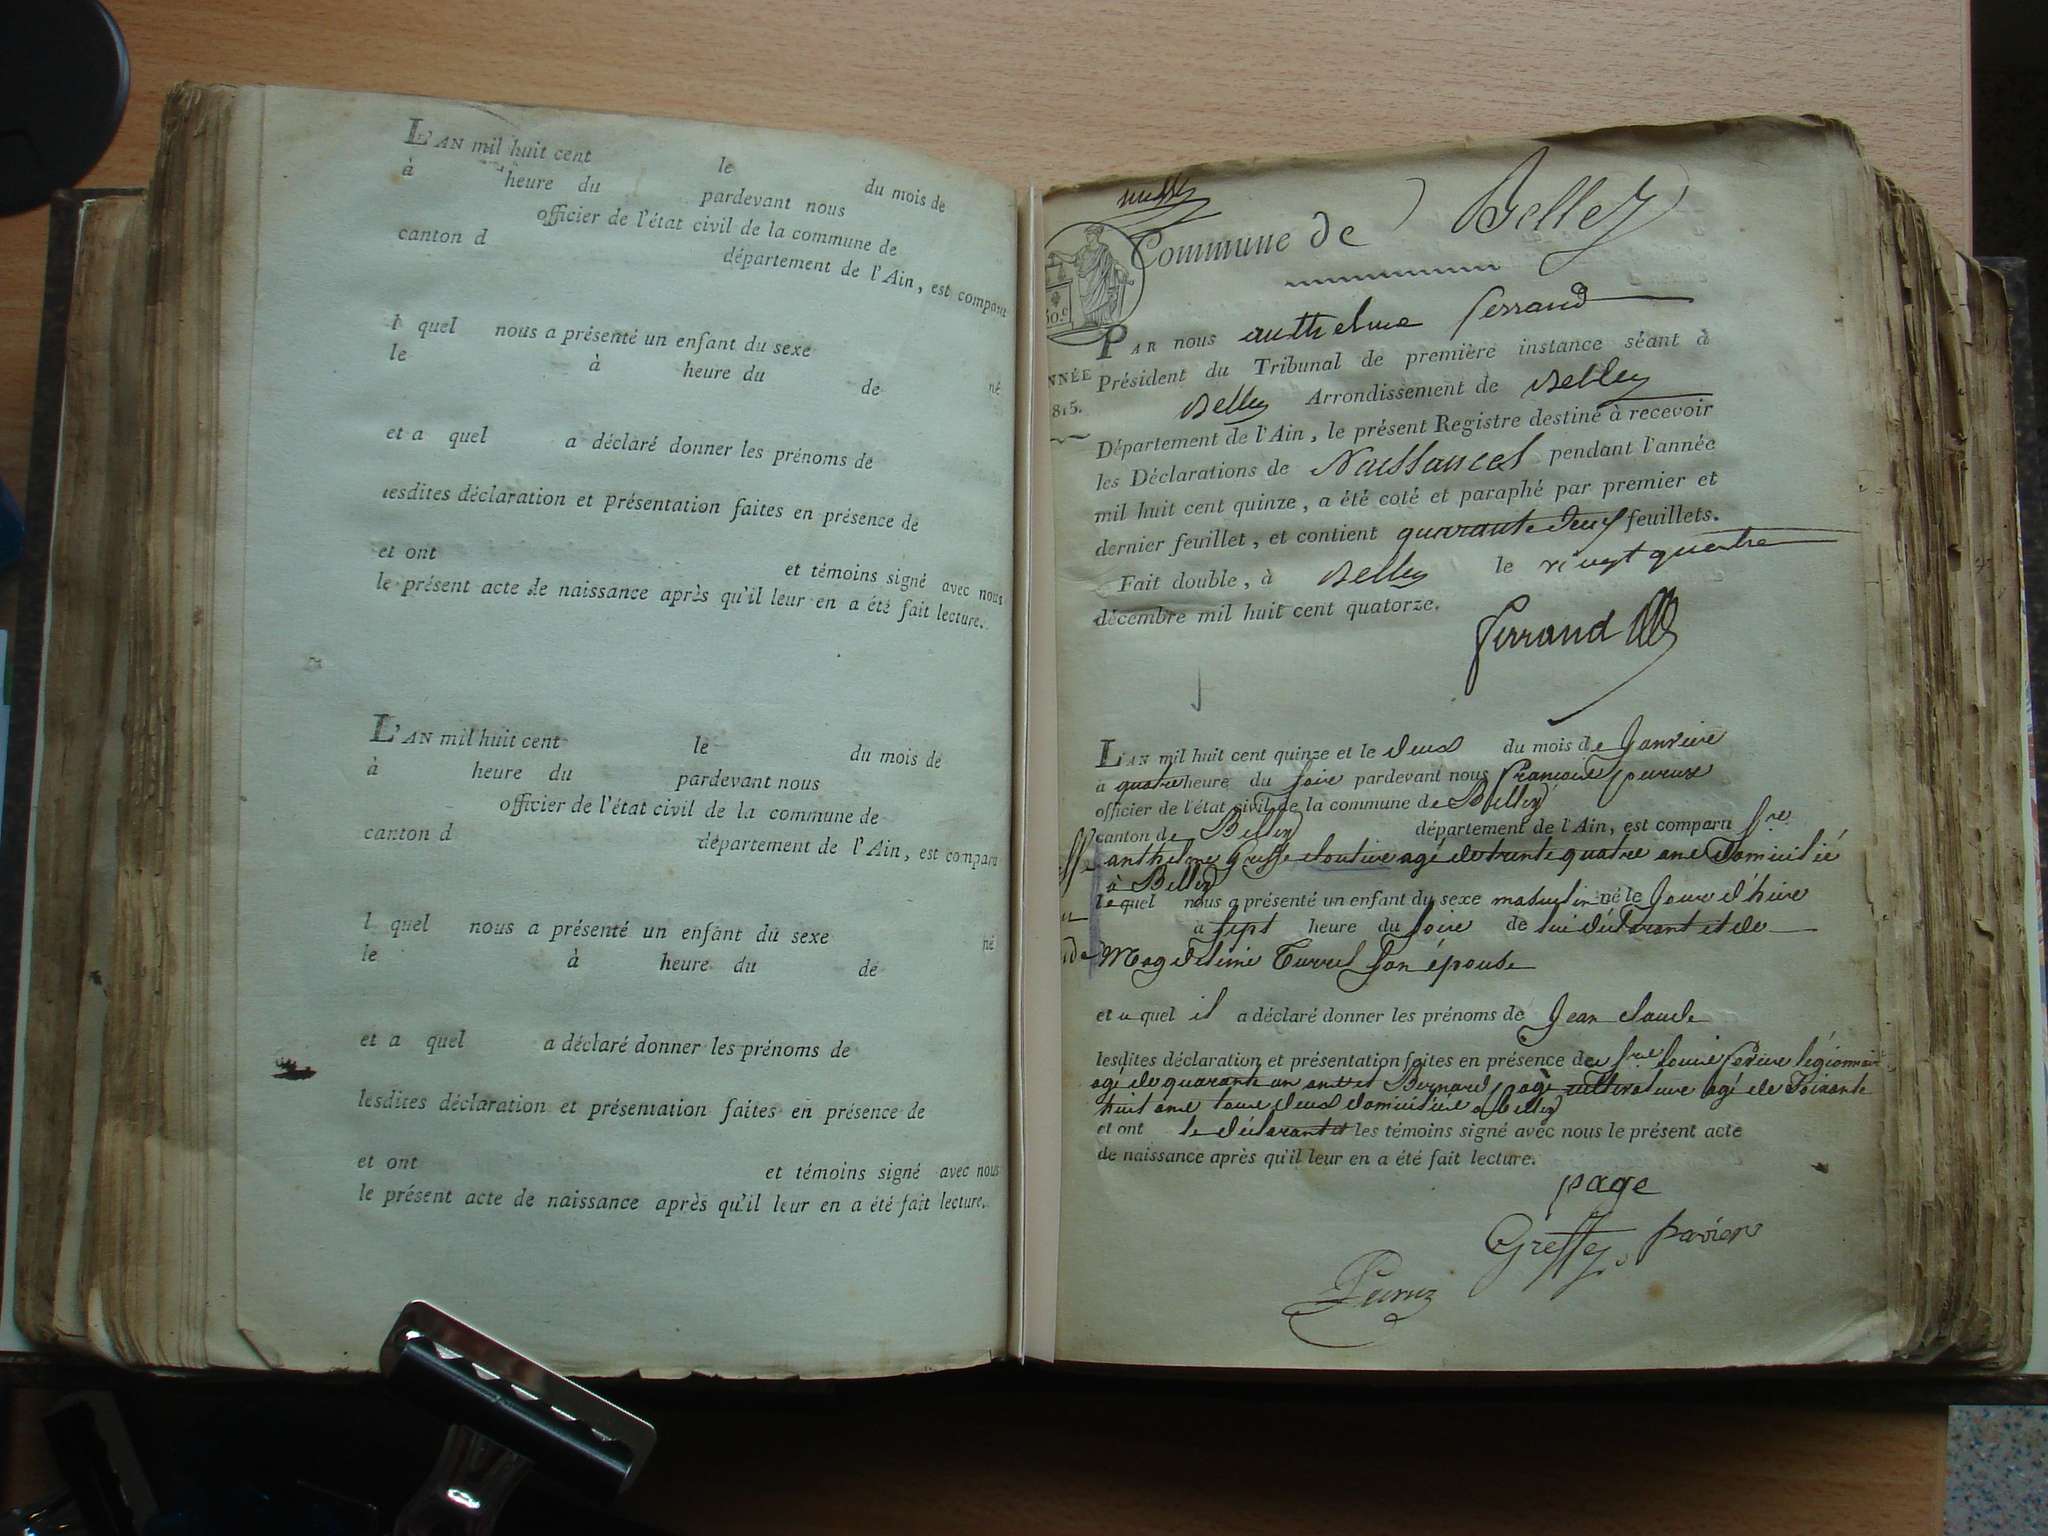 L'AN mil huit cent le du mois de
à heure du pardevant nous
officier de l'état civil de la commune de
canton d département de l'Ain, est comparu
l quel nous a présenté un enfant du sexe né
le à heure du de
et a quel a déclaré donner les prénoms de
lesdites déclaration et présentation faites en présence de
et ont et témoins signé avec nous
le présent acte de naissance après qu'il leur en a été fait lecture.
L'AN mil huit cent le du mois de
à heure du pardevant nous
officier de l'état civil de la commune de
canton d département de l'Ain, est comparu
l quel nous a présenté un enfant du sexe né
le à heure du de
et a quel a déclaré donner les prénoms de
lesdites déclaration et présentation faites en présence de
et ont et témoins signé avec nous
le présent acte de naissance après qu'il leur en a été fait lecture.
Commune de Belley
50.c
NNÉE
815.
PAR nous anthelme ferrand
Président du Tribunal de première instance séant à
Belley Arrondissement de Belley
Département de l'Ain, le présent Registre destiné à recevoir
les Déclarations de Naissances pendant l'année
mil huit cent quinze, a été coté et paraphé par premier et
dernier feuillet, et contient quarante deux feuillets.
Fait double, à Belley le vingt quatre
décembre mil huit cent quatorze.
ferrand
L'AN mil huit cent quinze et le deux du mois de Janvier
a quatre heure du soir pardevant nous François peruz
officier de l'état civil de la commune de Belley
canton de Belley département de l'Ain, est comparu Sre
anthelme Greffe cloutier agé de trente quatre ans domicilié
à Belley
le quel nous a présenté un enfant du sexe masculin né le Jour d'hier
à sept heure du soir de lui déclarant et de
Magdeleine Turrel son épouse
et a quel il a déclaré donner les prénoms de Jean claude
lesdites déclaration et présentation faites en présence de Sre louis légionnaire
agé de quarante un ans et Bernard page cultivateur agé de soixante
huit ans tous deux domiciliés a Belley
et ont le déclarant et les témoins signé avec nous le présent acte
de naissance après qu'il leur en a été fait lecture.
page
Greffe pavier
Peruz